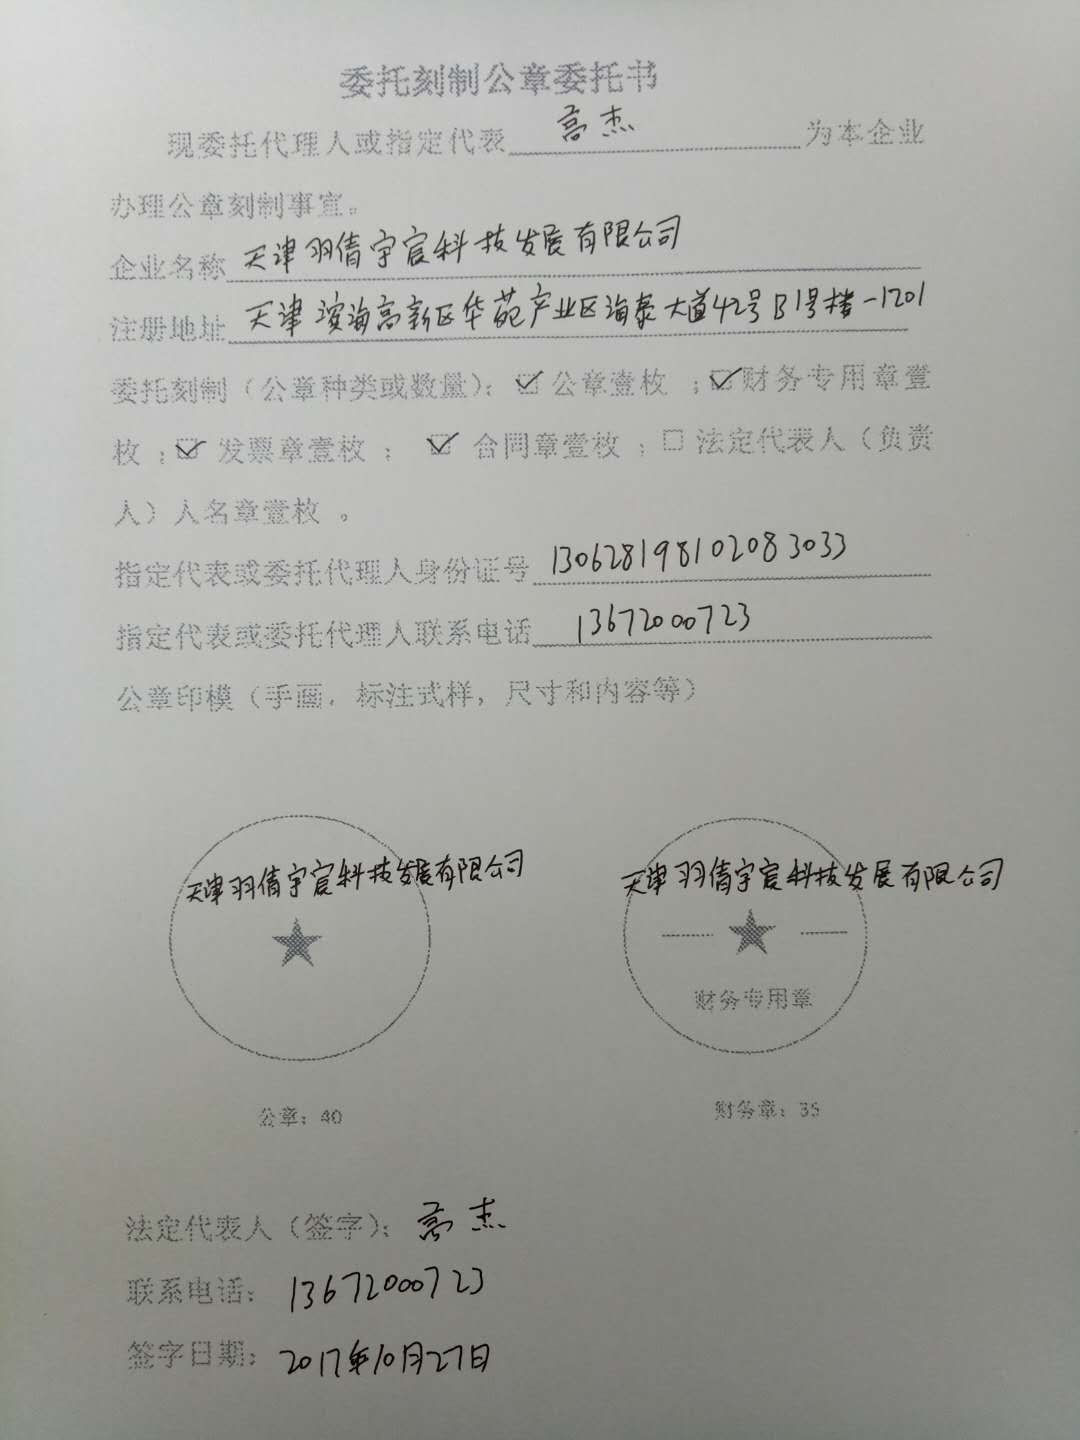 委托刻制公章委托书
现委托代理人或指定代表 高杰 为本企业
办理公章刻制事宜。
企业名称 天津羽倩宇宸科技发展有限公司
注册地址 天津滨海高新区华苑产业区海泰大道42号B1号楼-1201
委托刻制（公章种类或数量）：☑公章壹枚 ；☑财务专用章壹
枚 ；☑ 发票章壹枚 ； ☑ 合同章壹枚 ；☐ 法定代表人（负责
人）人名章壹枚 。
指定代表或委托代理人身份证号 130628198102083033
指定代表或委托代理人联系电话 13672000723
公章印模（手画，标注式样，尺寸和内容等）
天津羽倩宇宸科技发展有限公司
天津羽倩宇宸科技发展有限公司
财务专用章
公章：40
财务章：35
法定代表人（签字）：高杰
联系电话：13672000723
签字日期：2017年10月27日